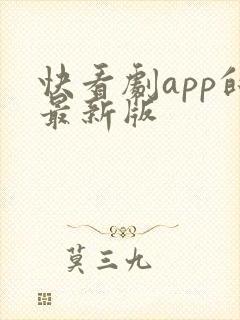 快看剧app的
最新版
莫三九